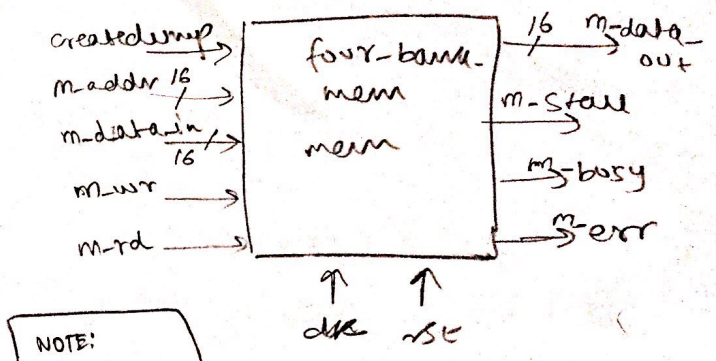 createdump
m-addr 16
m-data_in
16
m-wr
m-rd
four-bank-
mem
mem
16 m-data_
out
m-stall
m-busy
m-err
clk rst
NOTE: